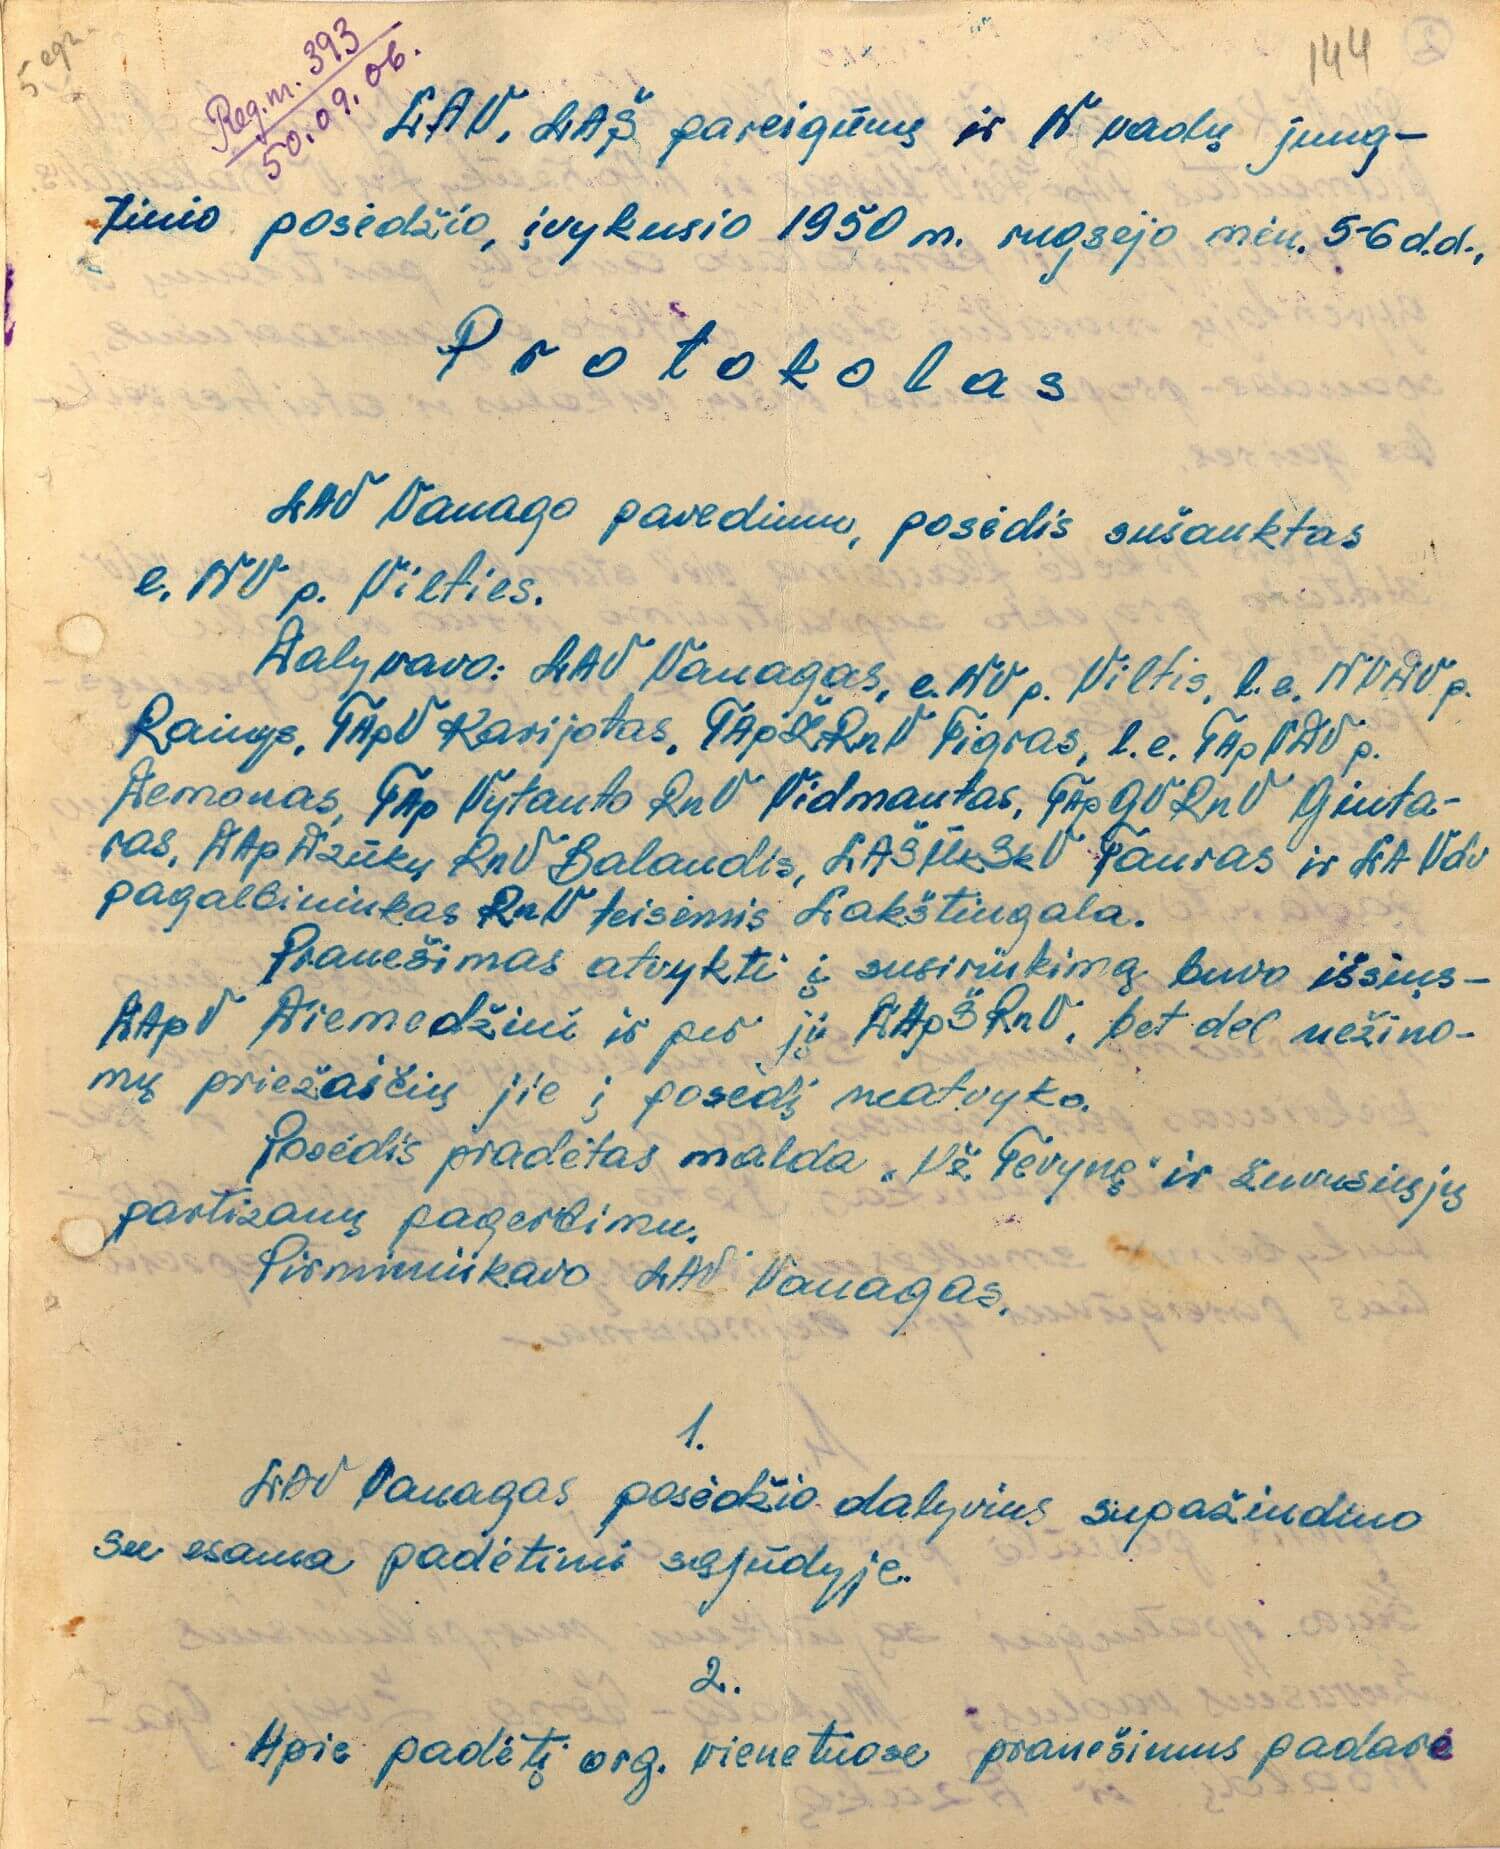 5 egz.
Reg. nr. 393
50.09.06.
144
2
LAV, LAŠ pareigūnų ir N vadų jung-
tinio posėdžio, įvykusio 1950 m. rugsėjo mėn. 5-6 d.d.,
Protokolas
LAV Vanago pavedimu, posėdis sušauktas
e. NV p. Vilties.
Dalyvavo: LAV Vanagas, e. NV p. Viltis, l.e. NVDV p.
Rainys, TApV Karijotas, TApŽRnV Tigras, l.e. TApVDV p.
Demonas, TAp Vytauto RnV Vidmantas, TApGVRnV Ginta-
ras, DAp Dzūkų RnV Balandis, LAŠŪkSkV Tauras ir LA Vdo
pagalbininkas RnV teisėmis Lakštingala.
Pranešimas atvykti į susirinkimą buvo išsiųs-
DApV Diemedžiui ir per jį DApŠRnV, bet dėl nežino-
mų priežasčių jie į posėdį neatvyko.
Posėdis pradėtas malda „Už Tėvynę" ir žuvusiųjų
partizanų pagerbimu.
Pirmininkavo LAV Vanagas.
1.
LAV Vanagas posėdžio dalyvius supažindino
su esama padėtimi sąjūdyje.
2.
Apie padėtį org. vienetuose pranešimus padarė